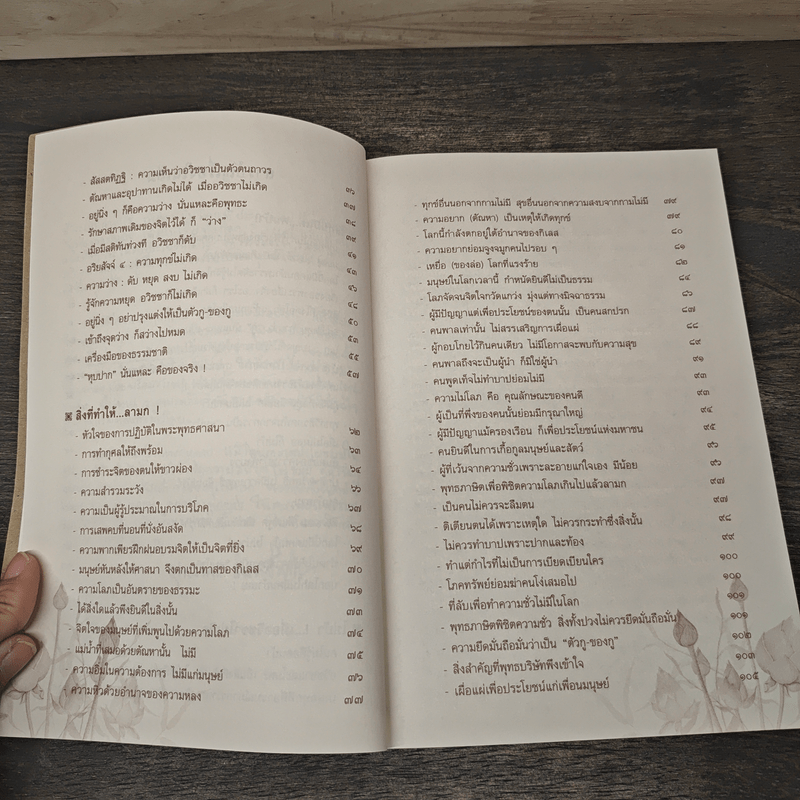 - สัสสตทิฏฐิ : ความเห็นว่าอวิชชาเป็นตัวตนถาวร ๓๖
- ตัณหาและอุปาทานเกิดไม่ได้ เมื่ออวิชชาไม่เกิด ๓๗
- อยู่นิ่ง ๆ ก็คือความว่าง นั่นแหละคือพุทธะ ๓๘
- รักษาสภาพเดิมของจิตไว้ได้ ก็ “ว่าง” ๓๙
- เมื่อมีสติทันท่วงที อวิชชาก็ดับ ๔๑
- อริยสัจจ์ ๔ : ความทุกข์ไม่เกิด ๔๓
- ความว่าง : ดับ หยุด สงบ ไม่เกิด ๔๖
- รู้จักความหยุด อวิชชาก็ไม่เกิด ๔๘
- อยู่นิ่ง ๆ อย่าปรุงแต่งให้เป็นตัวกู-ของกู ๕๐
- เข้าถึงจุดว่าง ก็สว่างไปหมด ๕๓
- เครื่องมือของธรรมชาติ ๕๕
- “หุบปาก” นั่นแหละ คือของจริง ! ๕๗
▣ สิ่งที่ทำให้...ลามก !
- หัวใจของการปฏิบัติในพระพุทธศาสนา ๖๒
- การทำกุศลให้ถึงพร้อม ๖๓
- การชำระจิตของตนให้ขาวผ่อง ๖๔
- ความสำรวมระวัง ๖๖
- ความเป็นผู้รู้ประมาณในการบริโภค ๖๗
- การเสพคบที่นอนที่นั่งอันสงัด ๖๘
- ความพากเพียรฝึกฝนอบรมจิตให้เป็นจิตที่ยิ่ง ๖๙
- มนุษย์หันหลังให้ศาสนา จึงตกเป็นทาสของกิเลส ๗๐
- ความโลภเป็นอันตรายของธรรมะ ๗๑
- ได้สิ่งใดแล้วพึงยินดีในสิ่งนั้น ๗๓
- จิตใจของมนุษย์ที่เพิ่มพูนไปด้วยความโลภ ๗๔
- แม่น้ำที่เสมอด้วยตัณหานั้น ไม่มี ๗๕
- ความอิ่มในความต้องการ ไม่มีแก่มนุษย์ ๗๖
- ความหิวด้วยอำนาจของความหลง ๗๗
- ทุกข์อื่นนอกจากกามไม่มี สุขอื่นนอกจากความสงบจากกามไม่มี ๗๙
- ความอยาก (ตัณหา) เป็นเหตุให้เกิดทุกข์ ๗๙
- โลกนี้กำลังตกอยู่ใต้อำนาจของกิเลส ๘๐
- ความอยากย่อมจูงจมูกคนไปรอบ ๆ ๘๑
- เหยื่อ (ของล่อ) โลกที่แรงร้าย ๘๒
- มนุษย์ในโลกเวลานี้ กำหนัดยินดีไม่เป็นธรรม ๘๔
- โลภจัดจนจิตใจกวัดแกว่ง มุ่งแต่ทางมิจฉาธรรม ๘๖
- ผู้มีปัญญาแต่เพื่อประโยชน์ของตนนั้น เป็นคนสกปรก ๘๗
- คนพาลเท่านั้น ไม่สรรเสริญการเผื่อแผ่ ๘๘
- ผู้กอบโกยไว้กินคนเดียว ไม่มีโอกาสจะพบกับความสุข ๘๙
- คนพาลถึงจะเป็นผู้นำ ก็มิใช่ผู้นำ ๙๑
- คนพูดเท็จไม่ทำบาปย่อมไม่มี ๙๓
- ความไม่โลภ คือ คุณลักษณะของคนดี ๙๓
- ผู้เป็นที่พึ่งของคนนั้นย่อมมีกรุณาใหญ่ ๙๔
- ผู้มีปัญญาแม้ครองเรือน ก็เพื่อประโยชน์แห่งมหาชน ๙๕
- คนยินดีในการเกื้อกูลมนุษย์และสัตว์ ๙๖
- ผู้ที่เว้นจากความชั่วเพราะละอายแก่ใจเอง มีน้อย ๙๖
- พุทธภาษิตเพื่อพิชิตความโลภเกินไปแล้วลามก ๙๗
- เป็นคนไม่ควรจะลืมตน ๙๗
- ติเตียนตนได้เพราะเหตุใด ไม่ควรกระทำซึ่งสิ่งนั้น ๙๘
- ไม่ควรทำบาปเพราะปากและท้อง ๙๙
- ทำแต่กำไรที่ไม่เป็นการเบียดเบียนใคร ๑๐๐
- โภคทรัพย์ย่อมฆ่าคนโง่เสมอไป ๑๐๐
- ที่ลับเพื่อทำความชั่วไม่มีในโลก ๑๐๑
- พุทธภาษิตพิชิตความชั่ว สิ่งทั้งปวงไม่ควรยึดมั่นถือมั่น ๑๐๑
- ความยึดมั่นถือมั่นว่าเป็น “ตัวกู-ของกู” ๑๐๒
- สิ่งสำคัญที่พุทธบริษัทพึงเข้าใจ ๑๐๓
- เผื่อแผ่เพื่อประโยชน์แก่เพื่อนมนุษย์ ๑๐๕